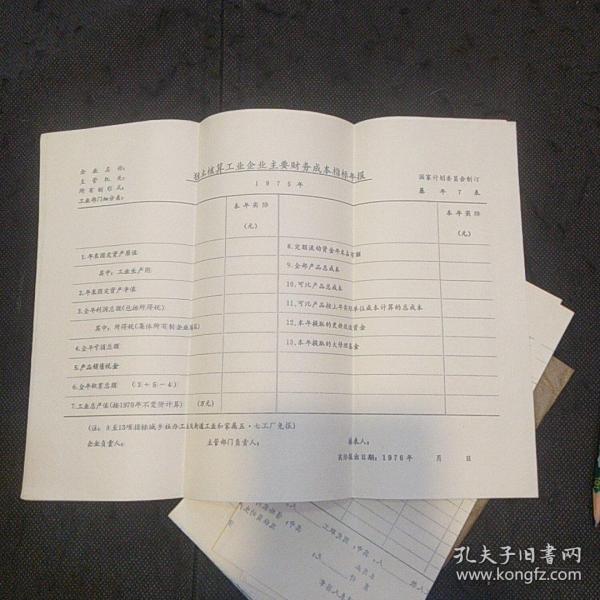 独立核算工业企业主要财务成本指标年报
1975年
企业名称:
主管机关:
所有制形式:
工业部门细分类:
国家计划委员会制订
基年7表
本年实际
(元)
本年实际
(元)
1.年末固定资产原值
其中:工业生产用
2.年末固定资产净值
3.全年利润总额(包括所得税)
其中:所得税(集体所有制企业填)
4.全年亏损总额
5.产品销售税金
6.全年积累总额 (3+5-4)
7.工业总产值(按1970年不变价计算) (万元)
8.定额流动资金年末占有额
9.全部产品总成本
10.可比产品总成本
11.可比产品按上年实际单位成本计算的总成本
12.本年提取的更新改造资金
13.本年提取的大修理基金
(注:8至13项指标城乡社办工业及街道工业和家属五·七工厂免报)
企业负责人:
主管部门负责人:
制表人:
实际报出日期:1976年 月 日
孔夫子旧书网
www.kongfz.com